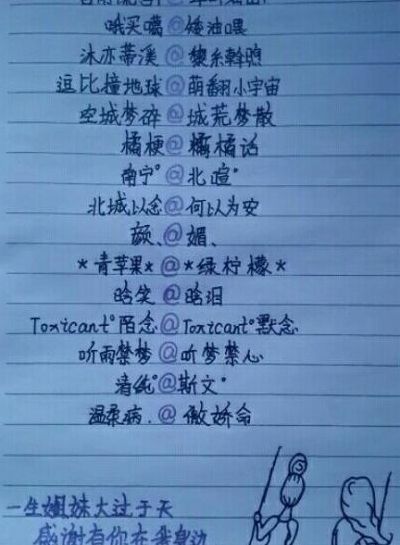 哦买噶@矮油喂
沐亦蒂溪@黎糸斡瞧
逗比撞地球@萌翻小宇宙
空城梦碎@城荒梦散
橘梗@橘话
南宁°@北喧°
北城以念@何以为安
颜、@媚、
*青苹果*@*绿柠檬*
晗笑@晗泪
Toxicant°陌念@Toxicant°默念
听雨禁梦@听梦禁心
清纯°@斯文°
温柔病.@傲娇命
一生姐妹大过于天
感谢有你在我身边